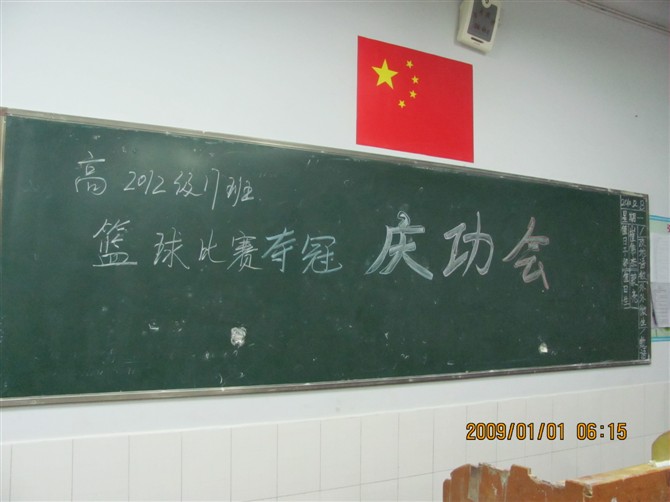 高2012级17班
篮球比赛夺冠 庆功会
2009/01/01 06:15